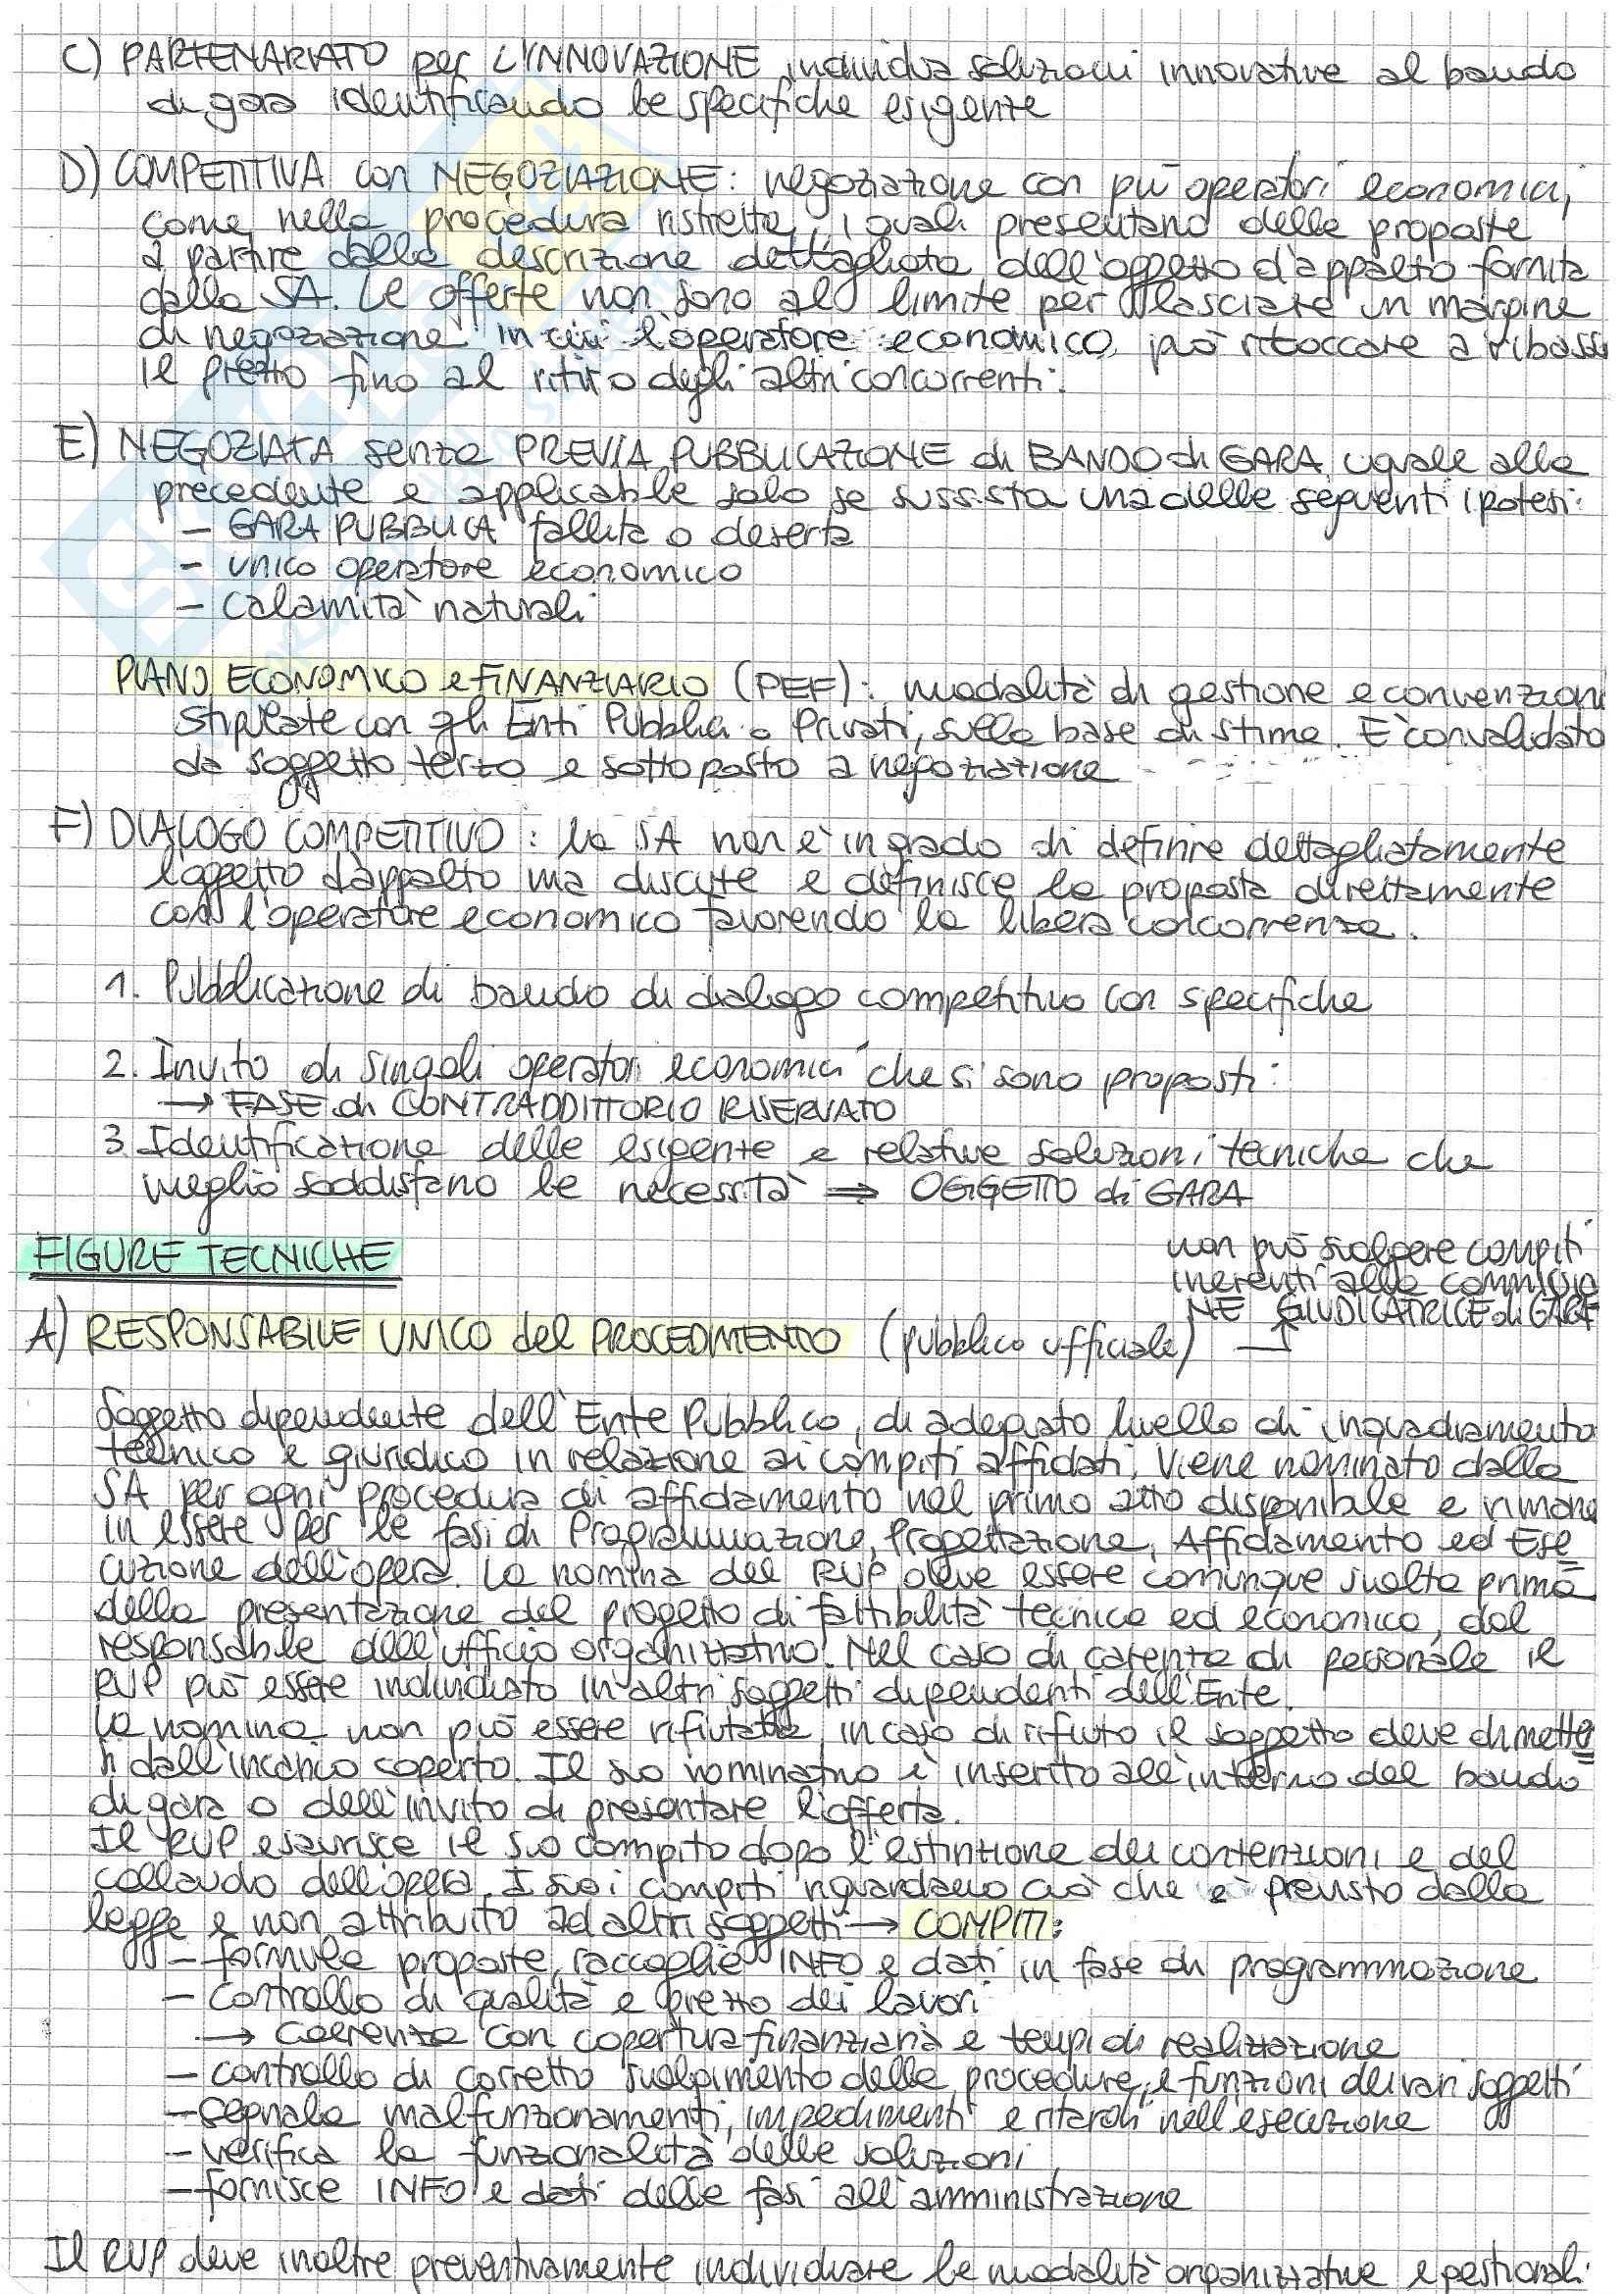 C) PARTENARIATO per L'INNOVAZIONE individua soluzioni innovative al bando
di gara identificando le specifiche esigenze
D) COMPETITIVA con NEGOZIAZIONE: negoziazione con più operatori economici,
come nella procedura ristretta, i quali presentano delle proposte
a partire dalla descrizione dettagliata dell'oggetto d'appalto fornita
dalla SA. Le offerte non sono al limite per lasciare un margine
di negoziazione in cui l'operatore economico può ritoccare a ribasso
il prezzo fino al ritiro degli altri concorrenti.
E) NEGOZIATA senza PREVIA PUBBLICAZIONE di BANDO di GARA uguale alla
precedente e applicabile solo se sussista una delle seguenti ipotesi:
- GARA PUBBLICA fallita o deserta
- unico operatore economico
- calamità naturali
PIANO ECONOMICO e FINANZIARIO (PEF): modalità di gestione e convenzioni
stipulate con gli Enti Pubblici o Privati, sulla base di stime. E' convalidato
da soggetto terzo e sottoposto a negoziazione
F) DIALOGO COMPETITIVO: la SA non è in grado di definire dettagliatamente
l'oggetto d'appalto ma discute e definisce la proposta direttamente
con l'operatore economico favorendo la libera concorrenza.
1. Pubblicazione di bando di dialogo competitivo con specifiche
2. Invito di singoli operatori economici che si sono proposti:
→ FASE di CONTRADDITTORIO RISERVATO
3. Identificazione delle esigenze e relative soluzioni tecniche che
meglio soddisfano le necessità ⇒ OGGETTO di GARA
FIGURE TECNICHE
non può svolgere compiti
inerenti alla commissio
NE GIUDICATRICE di GARA
A) RESPONSABILE UNICO del PROCEDIMENTO (pubblico ufficiale)
Soggetto dipendente dell'Ente Pubblico, di adeguato livello di inquadramento
tecnico e giuridico in relazione ai compiti affidati. Viene nominato dalla
SA per ogni procedura di affidamento nel primo atto disponibile e rimane
in essere per le fasi di Programmazione, Progettazione, Affidamento ed Ese=
cuzione dell'opera. La nomina del RUP deve essere comunque svolta prima
della presentazione del progetto di fattibilità tecnica ed economica, dal
responsabile dell'ufficio organizzativo. Nel caso di carenza di personale il
RUP può essere individuato in altri soggetti dipendenti dell'Ente.
La nomina non può essere rifiutata, in caso di rifiuto il soggetto deve dimette=
si dall'incarico coperto. Il suo nominativo è inserito all'interno del bando
di gara o dell'invito di presentare l'offerta.
Il RUP esaurisce il suo compito dopo l'estinzione dei contenziosi e del
collaudo dell'opera. I suoi compiti riguardano ciò che è previsto dalla
legge e non attribuito ad altri soggetti → COMPITI:
- formula proposte, raccoglie INFO e dati in fase di programmazione
- controllo di qualità e prezzo dei lavori
→ coerenza con copertura finanziaria e tempi di realizzazione
- controllo di corretto svolgimento delle procedure e funzioni dei vari soggetti
- segnala malfunzionamenti, impedimenti e ritardi nell'esecuzione
- verifica la funzionalità delle soluzioni
- fornisce INFO e dati delle fasi all'amministrazione
Il RUP deve inoltre preventivamente individuare le modalità organizzative e gestionali